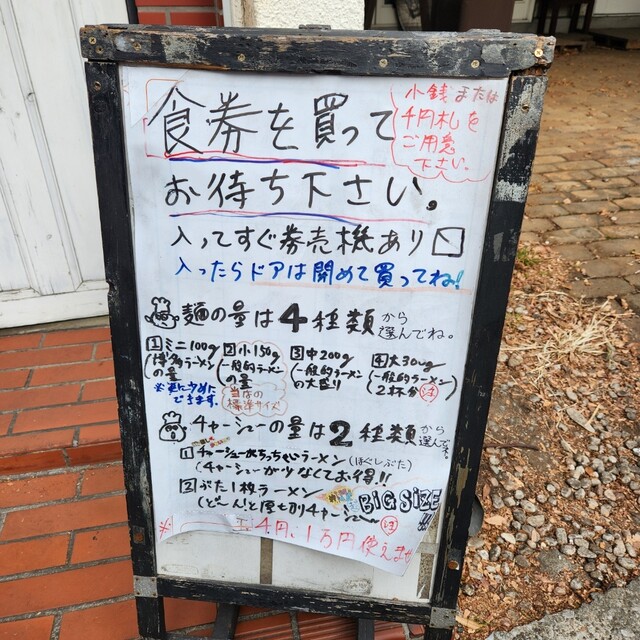 食券を買って
お待ち下さい。
小銭または
千円札を
ご用意
下さい。
入ってすぐ券売機あり
入ったらドアは閉めて買ってね!
麺の量は4種類から
選んでね。
1 ミニ100g
(博多ラーメン
の量
※更に少めに
できます。
2 小150g
(一般的ラーメン
の量
当店の
標準サイズ
3 中200g
(一般的ラーメン
の大盛り
4 大300g
(一般的ラーメン
2杯分
注
チャーシューの量は2種類から
選んで
1 チャーシューめちゃちっちゃいラーメン(ほぐしぶた)
(チャーシューが少なくてお得!!
2 ぶた1枚ラーメン
(ど〜んと厚切りチャーシュー
BIG SIZE!!
注
※ 千円、1万円使えませ